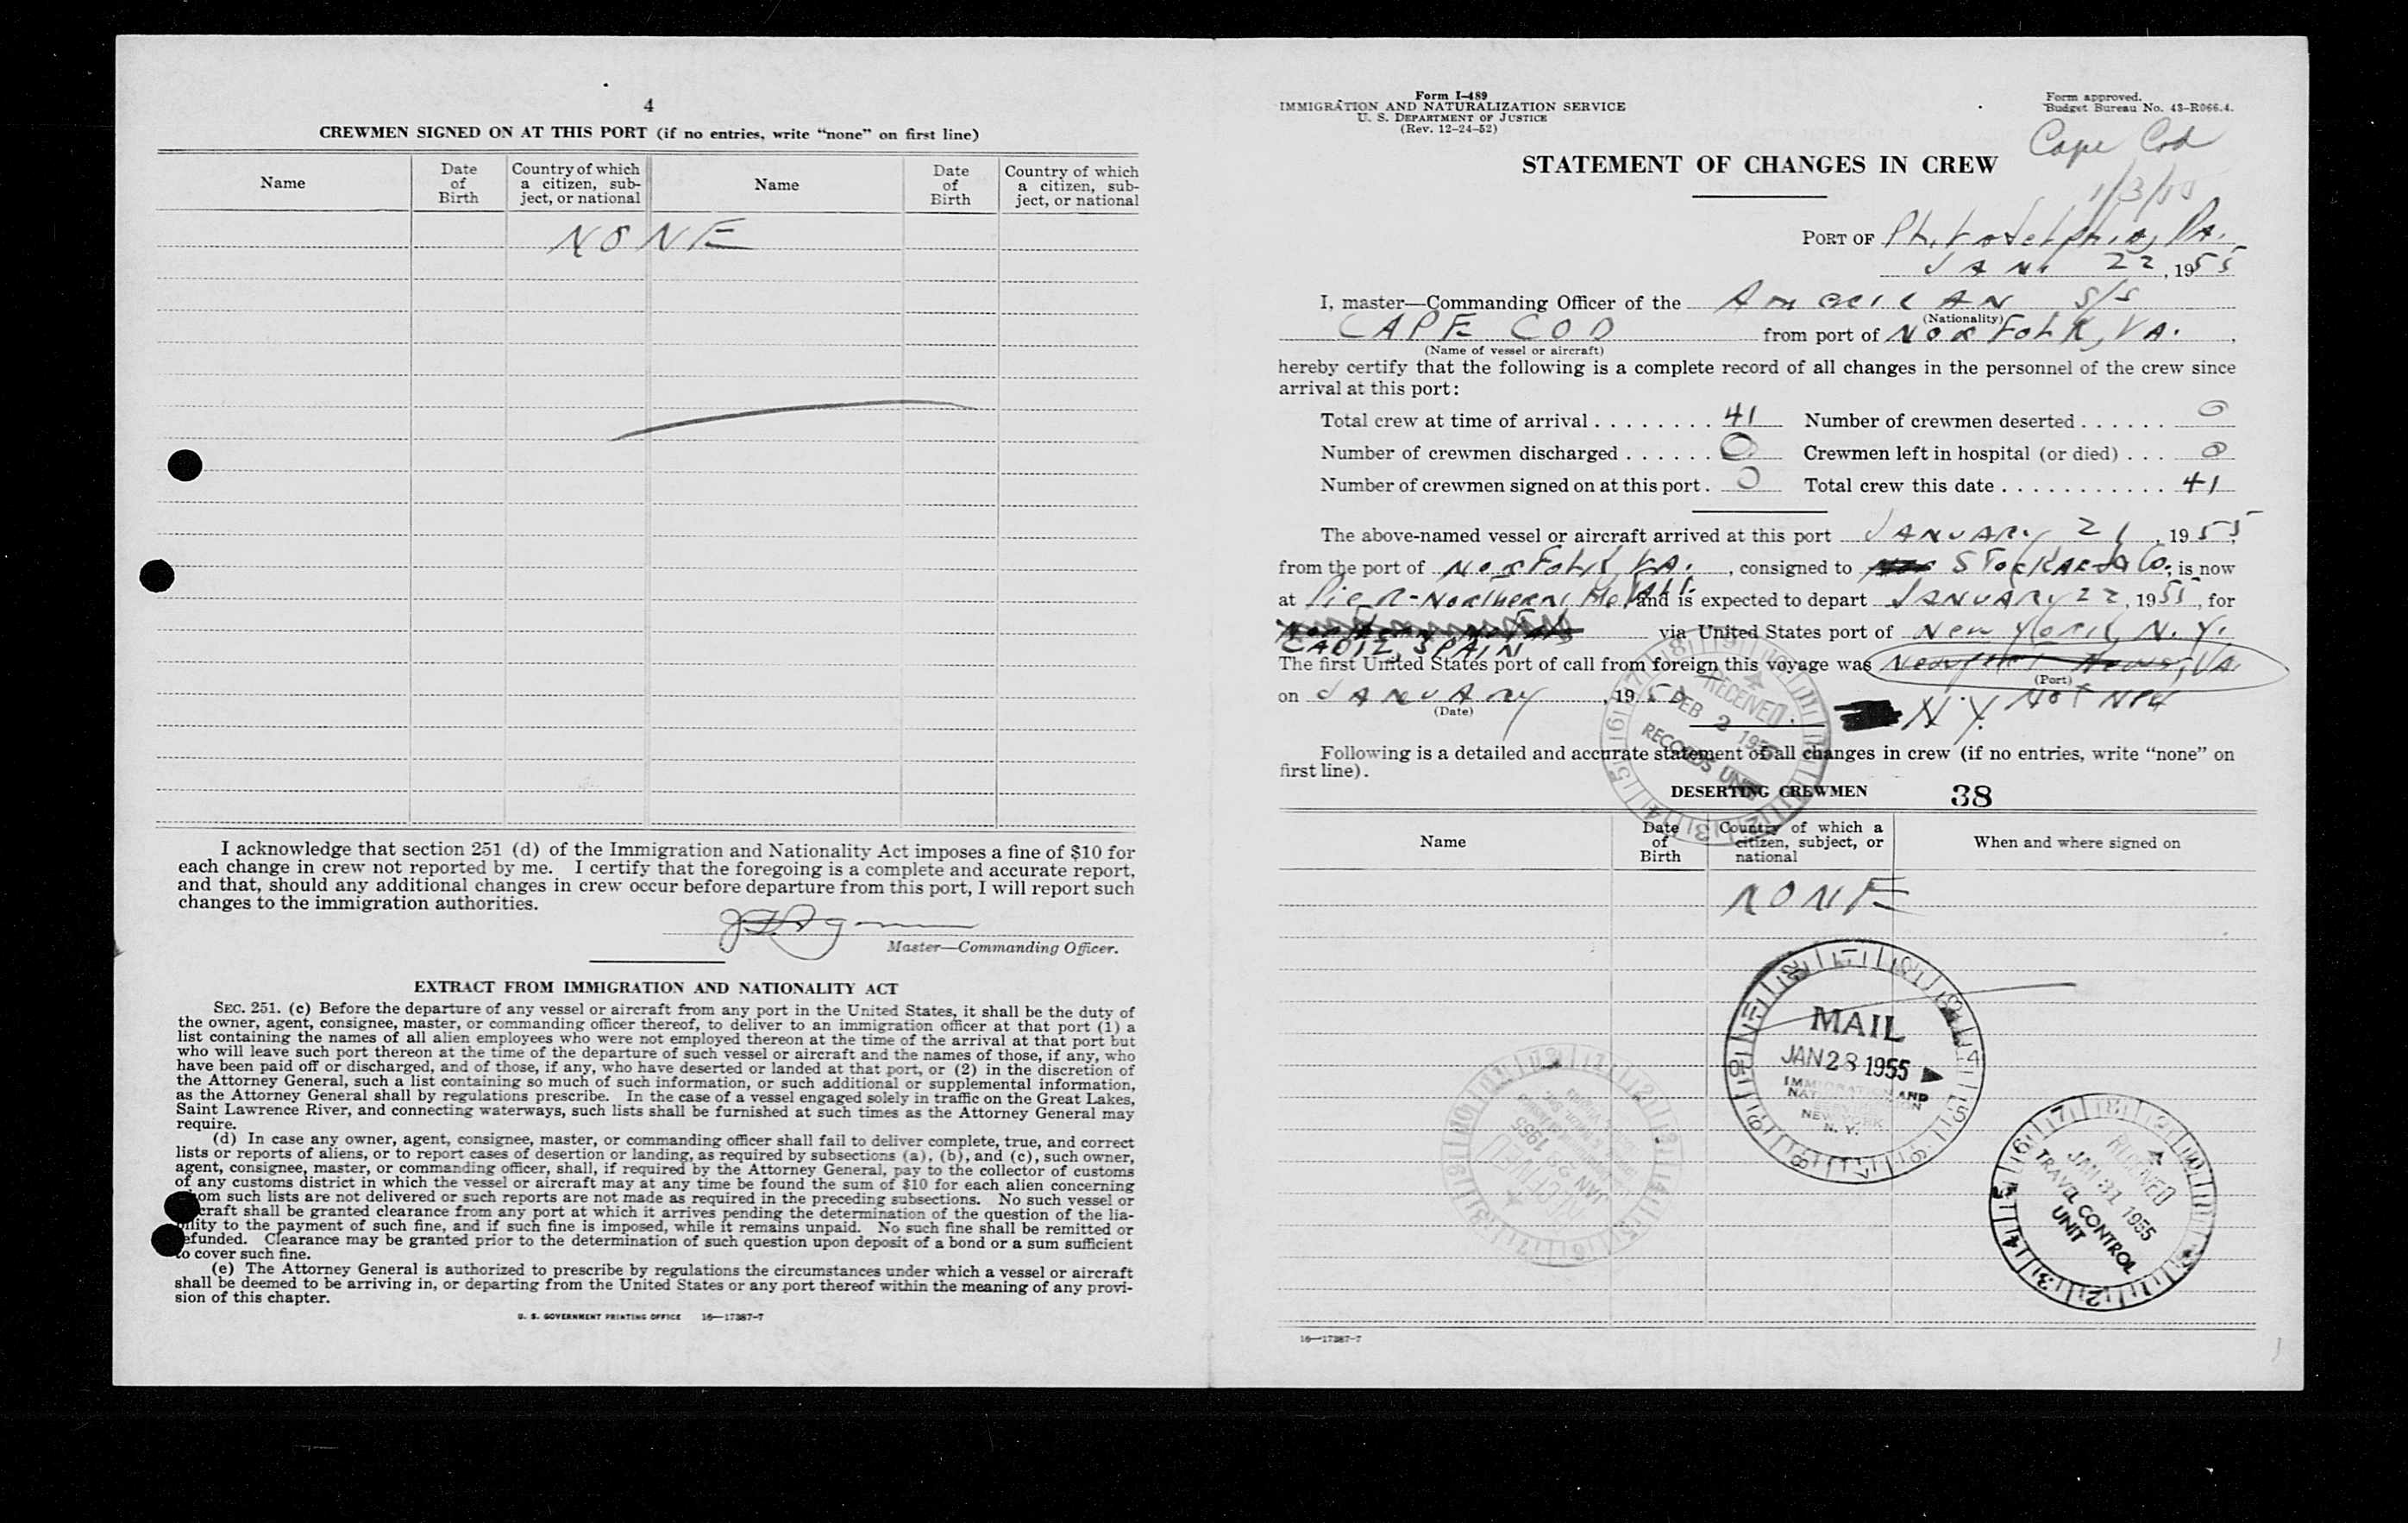 4
CREWMEN SIGNED ON AT THIS PORT (if no entries, write “none” on first line)
Name
Date of Birth
Country of which a citizen, sub-ject, or national
Name
Date of Birth
Country of which a citizen, sub-ject, or national
NONE
I acknowledge that section 251 (d) of the Immigration and Nationality Act imposes a fine of $10 for
each change in crew not reported by me. I certify that the foregoing is a complete and accurate report,
and that, should any additional changes in crew occur before departure from this port, I will report such
changes to the immigration authorities.
Master—Commanding Officer.
EXTRACT FROM IMMIGRATION AND NATIONALITY ACT
SEC. 251. (c) Before the departure of any vessel or aircraft from any port in the United States, it shall be the duty of
the owner, agent, consignee, master, or commanding officer thereof, to deliver to an immigration officer at that port (1) a
list containing the names of all alien employees who were not employed thereon at the time of the arrival at that port but
who will leave such port thereon at the time of the departure of such vessel or aircraft and the names of those, if any, who
have been paid off or discharged, and of those, if any, who have deserted or landed at that port, or (2) in the discretion of
the Attorney General, such a list containing so much of such information, or such additional or supplemental information,
as the Attorney General shall by regulations prescribe. In the case of a vessel engaged solely in traffic on the Great Lakes,
Saint Lawrence River, and connecting waterways, such lists shall be furnished at such times as the Attorney General may
require.
(d) In case any owner, agent, consignee, master, or commanding officer shall fail to deliver complete, true, and correct
lists or reports of aliens, or to report cases of desertion or landing, as required by subsections (a), (b), and (c), such owner,
agent, consignee, master, or commanding officer, shall, if required by the Attorney General, pay to the collector of customs
of any customs district in which the vessel or aircraft may at any time be found the sum of $10 for each alien concerning
om such lists are not delivered or such reports are not made as required in the preceding subsections. No such vessel or
craft shall be granted clearance from any port at which it arrives pending the determination of the question of the lia-
ility to the payment of such fine, and if such fine is imposed, while it remains unpaid. No such fine shall be remitted or
efunded. Clearance may be granted prior to the determination of such question upon deposit of a bond or a sum sufficient
to cover such fine.
(e) The Attorney General is authorized to prescribe by regulations the circumstances under which a vessel or aircraft
shall be deemed to be arriving in, or departing from the United States or any port thereof within the meaning of any provi-
sion of this chapter.
U. S. GOVERNMENT PRINTING OFFICE 16—17387-7
Form I-489
IMMIGRATION AND NATURALIZATION SERVICE
U. S. DEPARTMENT OF JUSTICE
(Rev. 12-24-52)
Form approved.
Budget Bureau No. 43-R066.4.
Cape Cod
1/3/55
STATEMENT OF CHANGES IN CREW
PORT OF Philadelphia, PA.
JAN. 22, 1955
I, master—Commanding Officer of the AmericAN S/S
(Nationality)
CAPE COD from port of NORFOLK, VA.,
(Name of vessel or aircraft)
hereby certify that the following is a complete record of all changes in the personnel of the crew since
arrival at this port:
Total crew at time of arrival . . . . . . . . 41 Number of crewmen deserted . . . . . . 0
Number of crewmen discharged . . . . . . 0 Crewmen left in hospital (or died) . . . 0
Number of crewmen signed on at this port . 0 Total crew this date . . . . . . . . . . . 41
The above-named vessel or aircraft arrived at this port JANUARY 21, 1955,
from the port of NORFOLK, VA., consigned to STockARd & Co; is now
at Pier-Northern Metals and is expected to depart JANUARY 22, 1955, for
CADIZ, SPAIN via United States port of New York, N.Y.
The first United States port of call from foreign this voyage was Newport News, VA
(Port)
Not NPN
N.Y.
on JANUARY, 195
(Date)
RECEIVED
FEB 2 1955
RECORDS UNIT
Following is a detailed and accurate statement of all changes in crew (if no entries, write “none” on
first line).
DESERTING CREWMEN 38
Name
Date of Birth
Country of which a citizen, subject, or national
When and where signed on
NONE
MAIL
JAN 28 1955
IMMIGRATION AND
NEW YORK
N. Y.
RECEIVED
JAN 31 1955
TRAVEL CONTROL
UNIT
RECEIVED
JAN 29 1955
16—17387-7